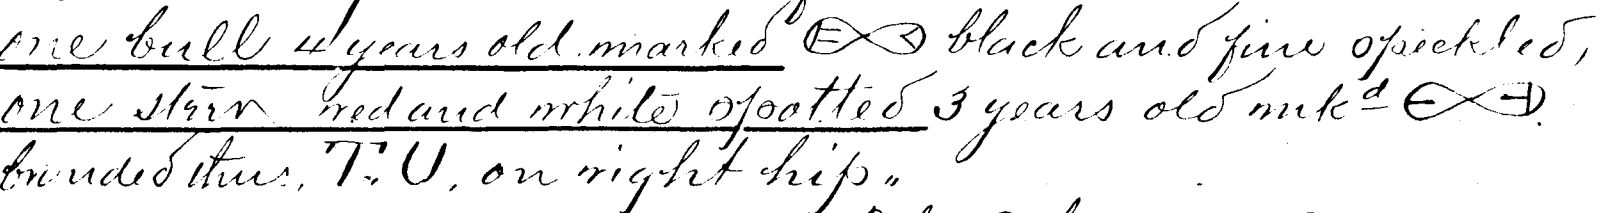 one bull 4 years old marked black and fine speckled,
one steer red and white spotted 3 years old mkd
branded thus, T. U, on right hip"